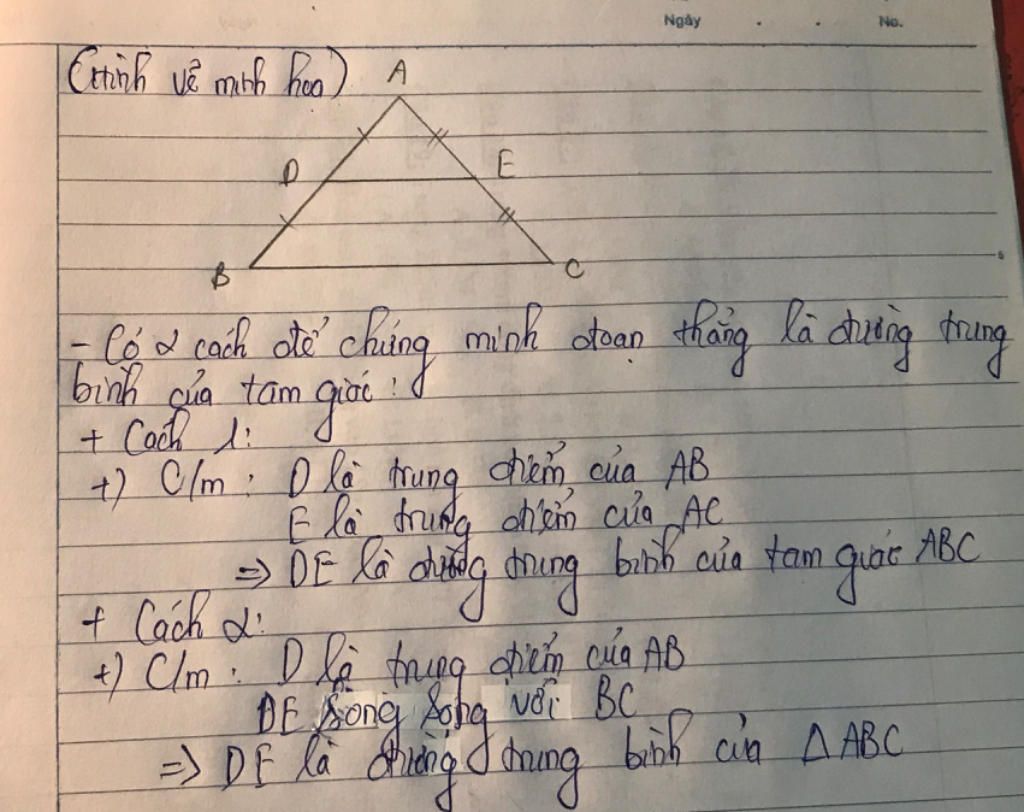 Ngày . . No.
(Hình vẽ minh hoạ)
A
D E
B C
- Có 2 cách để chứng minh đoạn thẳng là đường trung
bình của tam giác:
+ Cách 1:
+) C/m: D là trung điểm của AB
E là trung điểm của AC
=> DE là đường trung bình của tam giác ABC
+ Cách 2:
+) C/m: D là trung điểm của AB
DE song song với BC
=> DE là đường trung bình của Δ ABC